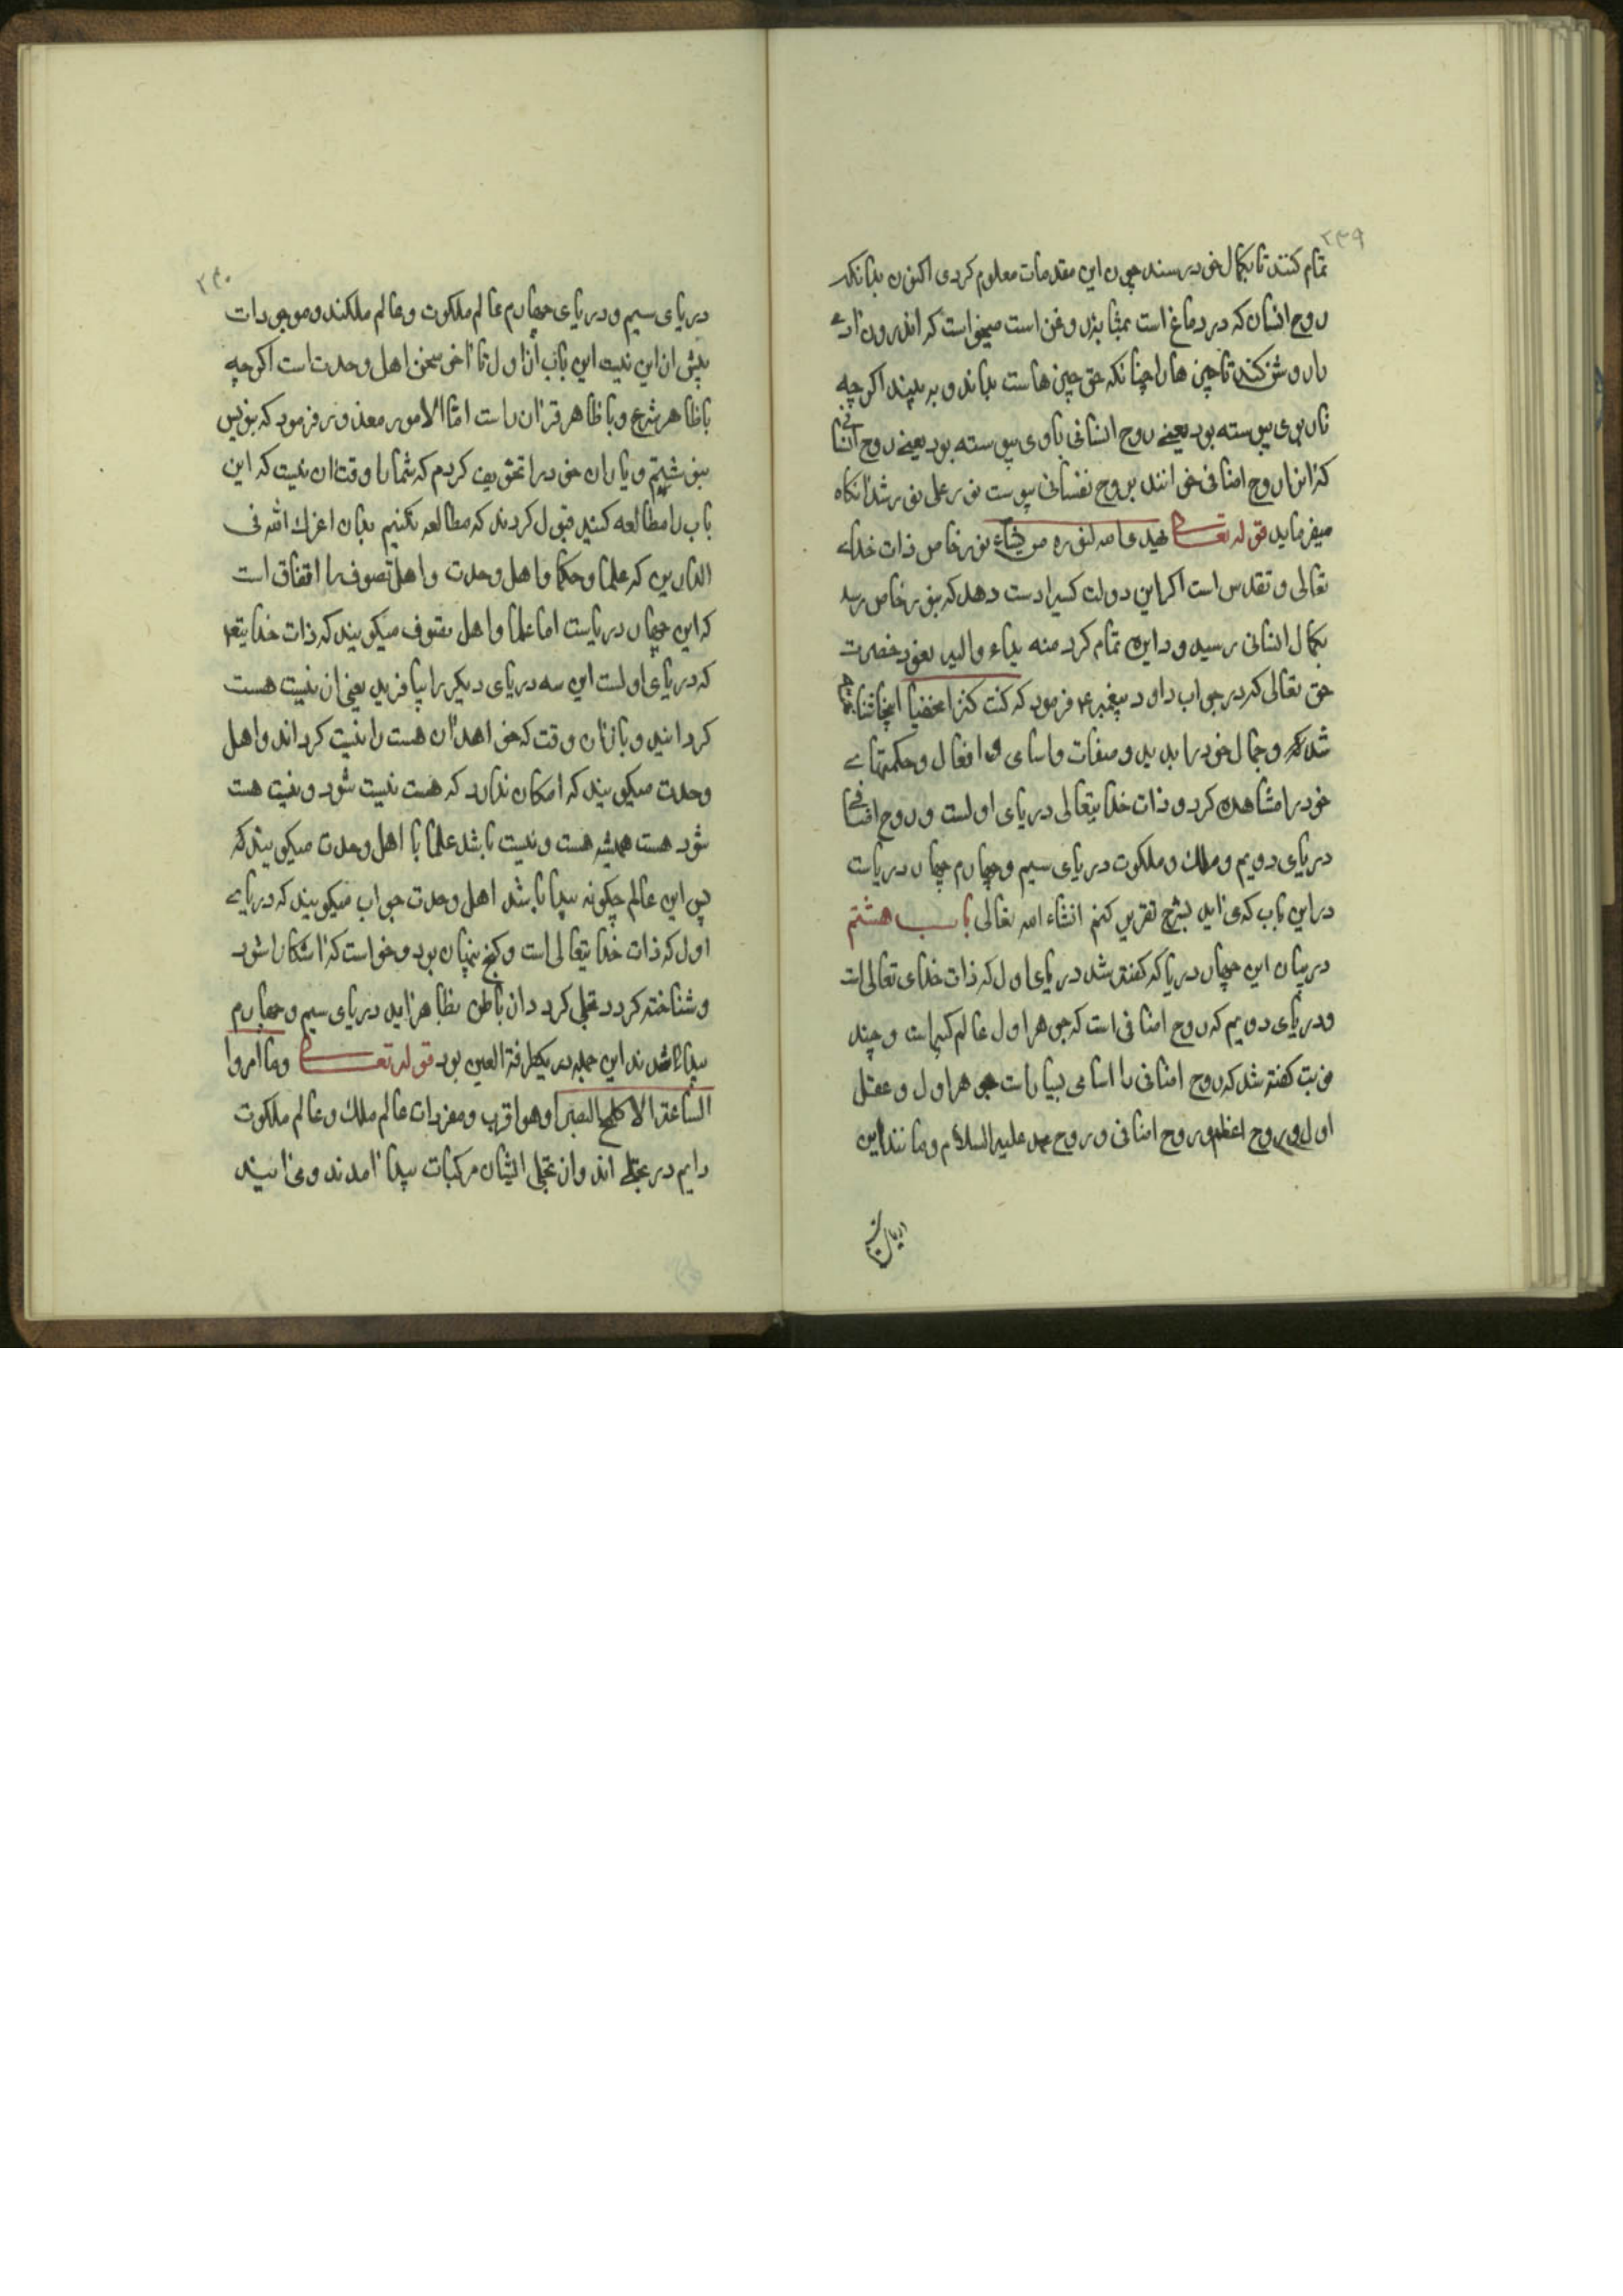 ۲۳۹
تمام کنند تا بکمال خود رسند چون این مقدمات معلوم کردی اکنون بدانکه
روح انسان که در دماغ است بمثابه روغن است میخواست که اندرون آدمی
را روشن کند تا چیزها را چنانکه حق چیزهاست بداند و به بیند اگر چه
نار بوی پیوسته بود یعنی روح انسانی باوی پیوسته بود یعنی روح انسانی
که از این روح اضافی خوانند بروح نفسانی پیوست نور علی نور شد آنکاه
میفرماید قوله تعالی یهدی الله لنوره من یشاء نور خاص ذات خدای
تعالی و تقدس است اکر این دولت کسیرا دست دهد که بنور خاص رسد
بکمال انسانی رسید و دایره تمام کرد منه بداء والیه یعود حضرت
حق تعالی که در جواب داود پیغمبر ۴ فرمود که کنت کنزا مخفیا اینجا
شد که وجمال خود را بدید و صفات و اسامی و افعال و حکمتهای
خود را مشاهده کرد و ذات خدایتعالی دریای اولست و روح اضافی
دریای دویم و ملک و ملکوت دریای سیم و چهارم چهار دریاست
در این باب که می آید بشرح تقریر کنم انشاء الله تعالی باب هشتم
در بیان این چهار دریا که کفته شد دریای اول که ذات خدای تعالی است
ودریای دویم که روح اضافی است که جوهر اول عالم کبیر است و چند
نوبت کفته شد که روح اضافی را اسامی بسیار است جوهر اول و عقل
اول و روح اعظم و روح اضافی و روح محمد علیه السلام و مانند این
۲۴۰
دریای سیم و دریای چهارم عالم ملکوت و عالم ملکند و موجودات
بیش از این نیست این باب از اول تا آخر سخن اهل وحدت است اکر چه
با ظاهر شرع و با ظاهر قران راست اما المامور معذور فرمود که بنویس
بنوشتم و یاران خود را تخویف کردم که شما را وقت آن نیست که این
باب را مطالعه کنید قبول کردند که مطالعه نکنیم بدان اعزک الله فی
الدارین که علما و حکما و اهل وحدت و اهل تصوف را اتفاق است
که این چهار دریاست اما علما و اهل تصوف میکویند که ذات خدایتعا
که دریای اولست این سه دریای دیکر را بیافرید یعنی از نیست هست
کردانید و باز آن وقت که خواهد از هست را نیست کرداند و اهل
وحدت میکویند که امکان ندارد که هست نیست شود و نیست هست
شود هست همیشه هست و نیست باشد علما با اهل وحدت میکویند که
پس این عالم چکونه پیدا باشد اهل وحدت جواب میکویند که دریای
اول که ذات خدایتعالی است و کنج پنهان بود و خواست که آشکارا شود
و شناخته کردد تجلی کرد و از باطن بظاهر آمد دریای سیم و چهارم
پیدا شدند این جمله در یکطرفة العین بود قوله تعالی وما امروا
الساعة الا کلمح البصر او هو اقرب و مفردات عالم ملک و عالم ملکوت
دایم در تجلی اند و از تجلی ایشان مرکبات پیدا آمدند و می آیند